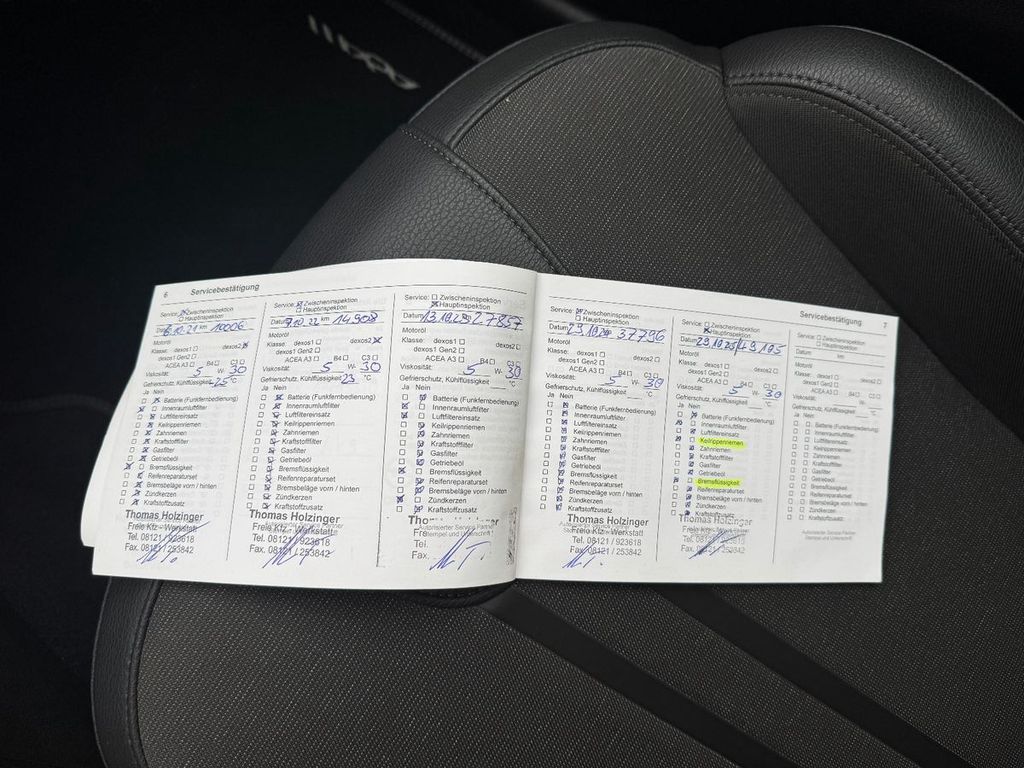 6 Servicebestätigung
Service: ☒ Zwischeninspektion
☐ Hauptinspektion
Datum 6.10.21 km 10006
Motoröl
Klasse: dexos1 ☐ dexos2 ☒
dexos1 Gen2 ☐
ACEA A3 ☐ B4 ☐ C3 ☐
Viskosität: 5 W- 30
Gefrierschutz, Kühlflüssigkeit -25 °C
Ja Nein
Batterie (Funkfernbedienung)
Innenraumluftfilter
Luftfiltereinsatz
Keilrippenriemen
Zahnriemen
Kraftstofffilter
Gasfilter
Getriebeöl
Bremsflüssigkeit
Reifenreparaturset
Bremsbeläge vorn / hinten
Zündkerzen
Kraftstoffzusatz
Thomas Holzinger
Freie Kfz – Werkstatt
Tel. 08121 / 923618
Fax. 08121 / 253842
Service: ☒ Zwischeninspektion
☐ Hauptinspektion
Datum 7.10.22 km 14908
Motoröl
Klasse: dexos1 ☐ dexos2 ☒
dexos1 Gen2 ☐
ACEA A3 ☐ B4 ☐ C3 ☐
Viskosität: 5 W- 30
Gefrierschutz, Kühlflüssigkeit 23 °C
Ja Nein
Batterie (Funkfernbedienung)
Innenraumluftfilter
Luftfiltereinsatz
Keilrippenriemen
Zahnriemen
Kraftstofffilter
Gasfilter
Getriebeöl
Bremsflüssigkeit
Reifenreparaturset
Bremsbeläge vorn / hinten
Zündkerzen
Kraftstoffzusatz
Thomas Holzinger
Freie Kfz – Werkstatt
Tel. 08121 / 923618
Fax. 08121 / 253842
Service: ☐ Zwischeninspektion
☒ Hauptinspektion
Datum 13.10.23 27857
Motoröl
Klasse: dexos1 ☐ dexos2 ☐
dexos1 Gen2 ☐
ACEA A3 ☐ B4 ☐ C3 ☐
Viskosität: 5 W- 30
Gefrierschutz, Kühlflüssigkeit °C
Ja Nein
Batterie (Funkfernbedienung)
Innenraumluftfilter
Luftfiltereinsatz
Keilrippenriemen
Zahnriemen
Kraftstofffilter
Gasfilter
Getriebeöl
Bremsflüssigkeit
Reifenreparaturset
Bremsbeläge vorn / hinten
Zündkerzen
Kraftstoffzusatz
Autorisierter Service Partner
Stempel und Unterschrift
Tel.
Fax.
Servicebestätigung 7
Service: ☒ Zwischeninspektion
☐ Hauptinspektion
37796
Motoröl
Klasse: dexos1 ☐ dexos2 ☐
dexos1 Gen2 ☐
ACEA A3 ☐ B4 ☐ C3 ☐
Viskosität: 5 W- 30
Gefrierschutz, Kühlflüssigkeit °C
Ja Nein
Batterie (Funkfernbedienung)
Innenraumluftfilter
Luftfiltereinsatz
Keilrippenriemen
Zahnriemen
Kraftstofffilter
Gasfilter
Getriebeöl
Bremsflüssigkeit
Reifenreparaturset
Bremsbeläge vorn / hinten
Zündkerzen
Kraftstoffzusatz
Thomas Holzinger
Freie Kfz – Werkstatt
Tel. 08121 / 923618
Fax. 08121 / 253842
Service: ☐ Zwischeninspektion
☒ Hauptinspektion
Datum 29.10.25 49 195
Motoröl
Klasse: dexos1 ☐ dexos2 ☐
dexos1 Gen2 ☐
ACEA A3 ☐ B4 ☐ C3 ☐
Viskosität: 5 W- 30
Gefrierschutz, Kühlflüssigkeit °C
Ja Nein
Batterie (Funkfernbedienung)
Innenraumluftfilter
Luftfiltereinsatz
Keilrippenriemen
Zahnriemen
Kraftstofffilter
Gasfilter
Getriebeöl
Bremsflüssigkeit
Reifenreparaturset
Bremsbeläge vorn / hinten
Zündkerzen
Kraftstoffzusatz
Thomas Holzinger
Freie Kfz – Werkstatt
Tel. 08121 / 923618
Fax. 08121 / 253842
Service: ☐ Zwischeninspektion
☐ Hauptinspektion
Datum km
Motoröl
Klasse: dexos1 ☐ dexos2 ☐
dexos1 Gen2 ☐
ACEA A3 ☐ B4 ☐ C3 ☐
Viskosität: W-
Gefrierschutz, Kühlflüssigkeit °C
Ja Nein
Batterie (Funkfernbedienung)
Innenraumluftfilter
Luftfiltereinsatz
Keilrippenriemen
Zahnriemen
Kraftstofffilter
Gasfilter
Getriebeöl
Bremsflüssigkeit
Reifenreparaturset
Bremsbeläge vorn / hinten
Zündkerzen
Kraftstoffzusatz
Autorisierter Service Partner
Stempel und Unterschrift